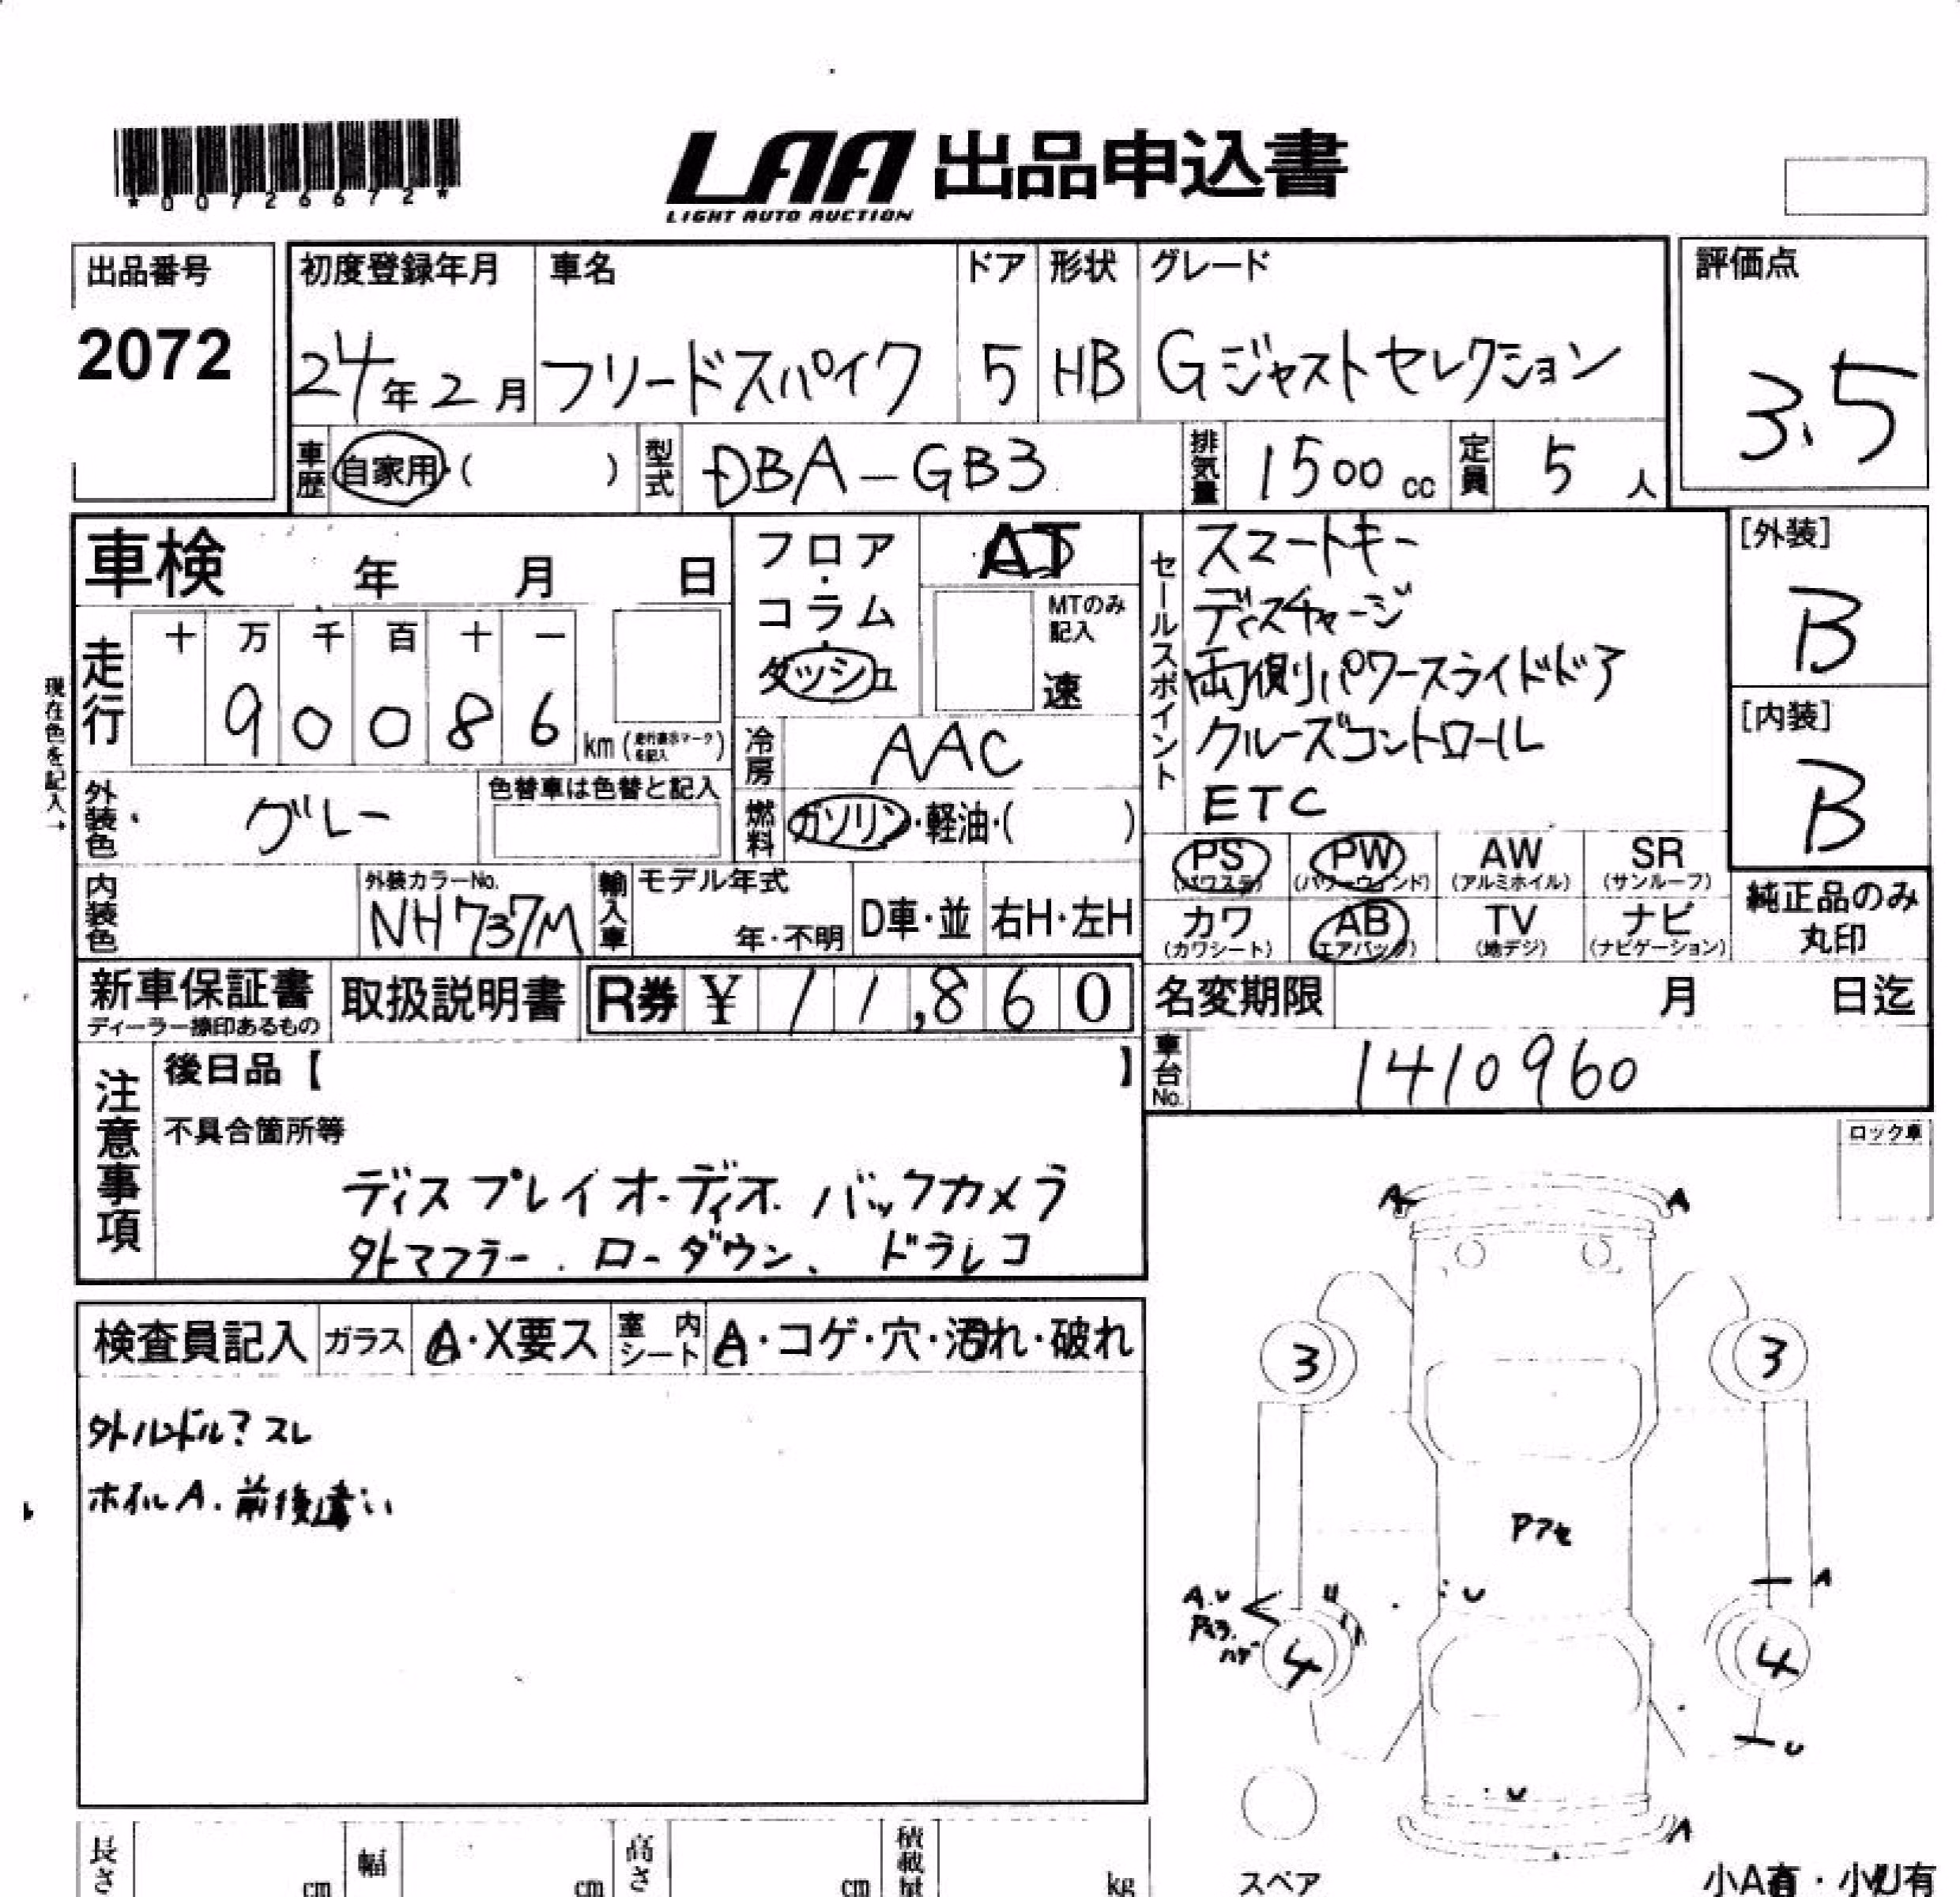 *00726672*
LAA 出品申込書
LIGHT AUTO AUCTION
出品番号
2072
初度登録年月
24年2月
車名
フリードスパイク
ドア
5
形状
HB
グレード
Gジャストセレクション
評価点
3.5
車歴
自家用・( )
型式
DBA-GB3
排気量
1500 cc
定員
5 人
車検 年 月 日
フロア・コラム・ダッシュ
AT
MTのみ記入
速
走行
十 万 千 百 十 一
9 0 0 8 6 km (走行表示マークを記入)
現在色を記入→
冷房
AAC
外装色
グレー
色替車は色替と記入
燃料
ガソリン・軽油・( )
内装色
外装カラーNo.
NH737M
輸入車
モデル年式
年・不明
D車・並
右H・左H
セールスポイント
スマートキー
ディスチャージ
両側パワースライドドア
クルーズコントロール
ETC
[外装]
B
[内装]
B
PS (パワステ)
PW (パワーウィンド)
AW (アルミホイル)
SR (サンルーフ)
カワ (カワシート)
AB (エアバック)
TV (地デジ)
ナビ (ナビゲーション)
純正品のみ丸印
新車保証書
ディーラー捺印あるもの
取扱説明書
R券 ¥ 11,860
名変期限 月 日迄
車台No.
1410960
注意事項
後日品【 】
不具合箇所等
ディスプレイオーディオ. バックカメラ
外マフラー. ローダウン、ドラレコ
ロック車
検査員記入
ガラス
A・X要ス
室内シート
A・コゲ・穴・汚れ・破れ
外ハンドル?スレ
ホイルA. 前後違い
A A
3 3
Pアセ
A.U
U
A
4 4
U
U
A
スペア
小A有・小U有
長さ cm
幅 cm
高さ cm
積載量 kg